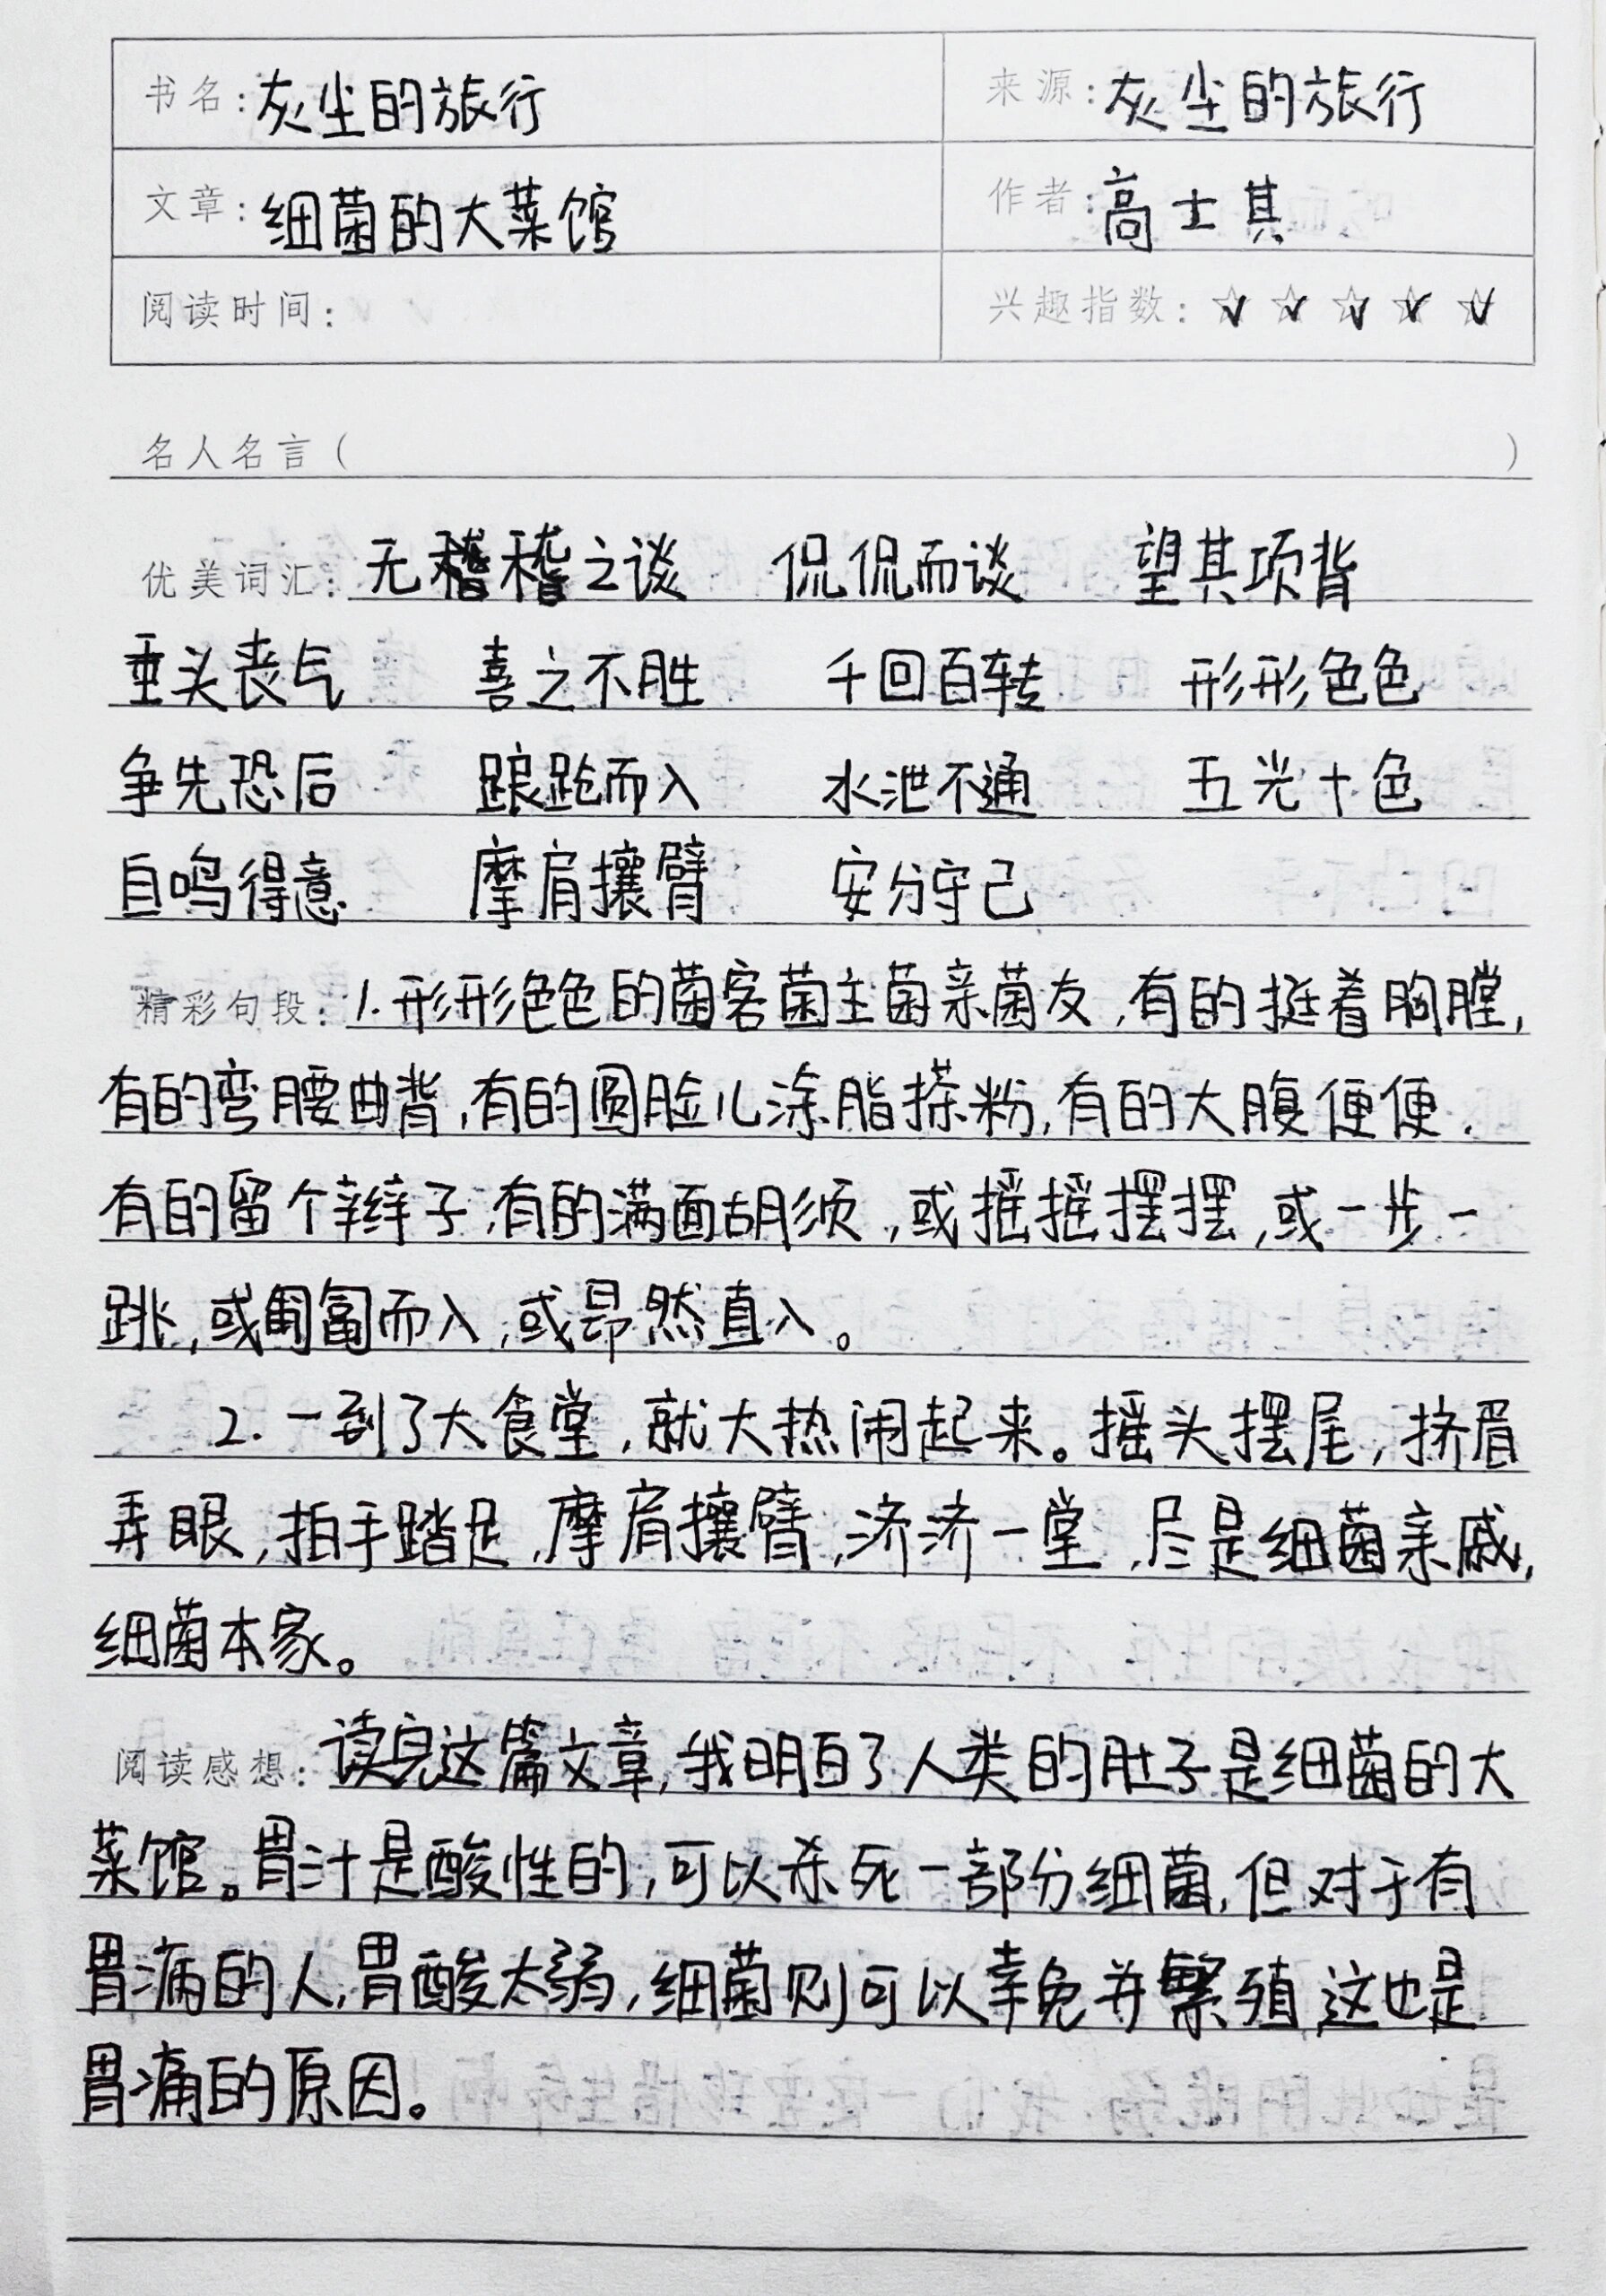 书名：灰尘的旅行 来源：灰尘的旅行
文章：细菌的大菜馆 作者：高士其
阅读时间： 兴趣指数：☆ ☆ ☆ ☆ ☆
名人名言（ ）
优美词汇：无稽之谈 侃侃而谈 望其项背
垂头丧气 喜之不胜 千回百转 形形色色
争先恐后 踉跄而入 水泄不通 五光十色
自鸣得意 摩肩攘臂 安分守己
精彩句段：1.形形色色的菌客菌主菌亲菌友，有的挺着胸膛，
有的弯腰曲背，有的圆脸儿涂脂搽粉，有的大腹便便，
有的留个辫子，有的满面胡须，或摇摇摆摆，或一步一
跳，或匍匐而入，或昂然直入。
2.一到了大食堂，就大热闹起来。摇头摆尾，挤眉
弄眼，拍手踏足，摩肩攘臂，济济一堂，尽是细菌亲戚，
细菌本家。
阅读感想：读完这篇文章，我明白了人类的肚子是细菌的大
菜馆。胃汁是酸性的，可以杀死一部分细菌，但对于有
胃病的人，胃酸太弱，细菌则可以幸免并繁殖 这也是
胃痛的原因。